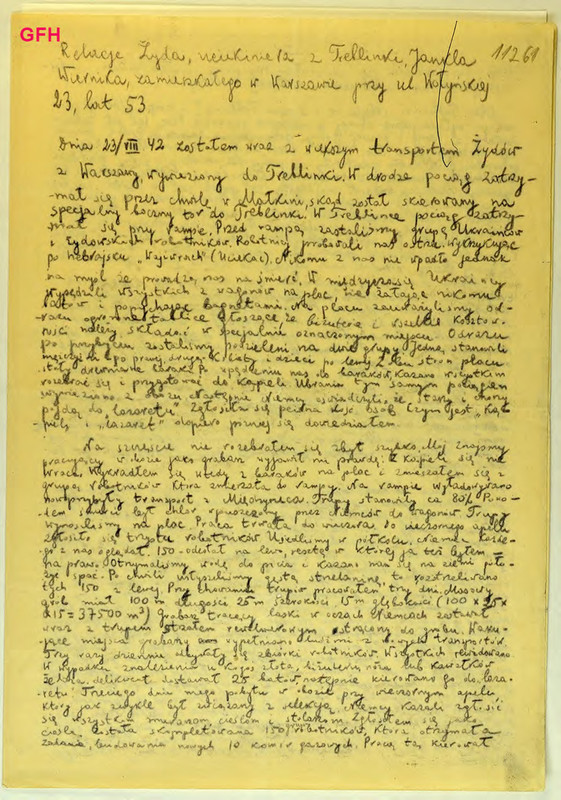 GFH
11261
Relacje Żyda, uciekiniera z Treblinki, Jankla
Wiernika, zamieszkałego w Warszawie przy ul Wołyńskiej
23, lat 53
Dnia 23/VIII 42 zostałem wraz z większym transportem Żydów
z Warszawy, wywieziony do Treblinki. W drodze pociąg zatrzy-
mał się przez chwilę w Małkini, skąd został skierowany na
specjalny boczny tor do Treblinki. W Treblince pociąg zatrzy-
mał się przy rampie. Przed rampą zastaliśmy grupę Ukraińców
i żydowskich robotników. Robotnicy próbowali nas ostrzec wykrzykując
po hebrajsku (Uciekać). Nikomu z nas nie wpadło jednak
na myśl że prowadzą nas na śmierć. W międzyczasie Ukraińcy
wypędzili wszystkich z wagonów na plac, nie żałując nikomu
batów i popychając bagnetami. Na placu zauważyliśmy od-
razu ogromne tablice głoszące że biżuterię i wszelkie kosztow-
ności należy składać w specjalnie oznaczonym miejscu. Odrazu
po przybyciu zostaliśmy podzieleni na dwie grupy. Jedną stanowili
mężczyźni po prawej, drugą kobiety i dzieci po lewej. Z obu stron placu
stały drewniane baraki. Po wpędzeniu nas do baraków, kazano wszystkim
rozebrać się i przygotować do kąpieli. Ubrania tym samym
Następnie Niemcy oświadczyli, że starzy i chorzy
pojdą do „lazaretu". Zgłosiła się pewna ilość osób. Czym jest „Kąp-
piel„ i „lazaret" dopiero później się dowiedziałem.
Na szczęście nie rozebrałem się zbyt szybko. Mój znajomy
pracujący w obozie jako grabarz wyjawił mi prawdę: z kąpieli się nie
wraca. Wykradłem się wtedy z baraków na plac i zmieszałem się z
grupą robotników która zmierzała do rampy. Na rampie wyładowywano
nowoprzybyły transport z Międzyrzeca. Trupy stanowiły ca. 80% Powo-
dem śmierci był chlor wpuszczony przez Niemców do wagonów. Trupy
wynosiliśmy na plac. Praca trwała do wieczora. Do wieczornego apelu
zgłosiło się trzystu robotników. Usiedliśmy w półkolu, Niemcy każde-
go z nas oglądał. 150 odesłał na lewo, resztę w której ja też byłem
na prawo. Otrzymaliśmy wodę do picia i kazano nam się na ziemi poło-
żyć spać. Po chwili usłyszeliśmy gęstą strzelaninę, to rozstrzeliwano
tych 150 z lewej. Przy chowaniu trupów pracowałem trzy dni. Masowy
grób miał 100 m długości 25 m szerokości 15 m głębokości (100 x 25 x
x 15 = 37500 m³) Grabarz tracący łaski w oczach Niemców zostawał
wraz z trupem strzałem rewolwerowym strącony do grobu. Waku-
jące miejsca grabarzy wypełniano ludźmi z nowych transportów.
Trzy razy dziennie odbywały się zbiórki robotników. Wszystkich rewidowano.
W wypadku znalezienia u kogoś złota, biżuterii, noża lub kawałków
żelaza, delikwent dostawał 25 batów, następnie kierowano go do laza-
retu. Trzeciego dnia mego pobytu w obozie przy wieczornym apelu
który jak zwykle był związany z selekcją, Niemcy kazali zgłosić
się wszystkim murarzom, cieślom i stolarzom. Zgłosiłem się jako
cieśla. Została skompletowana 150 grupa robotników, która otrzymała
zadanie, budowania nowych 10 komór gazowych. Pracą tą kierował